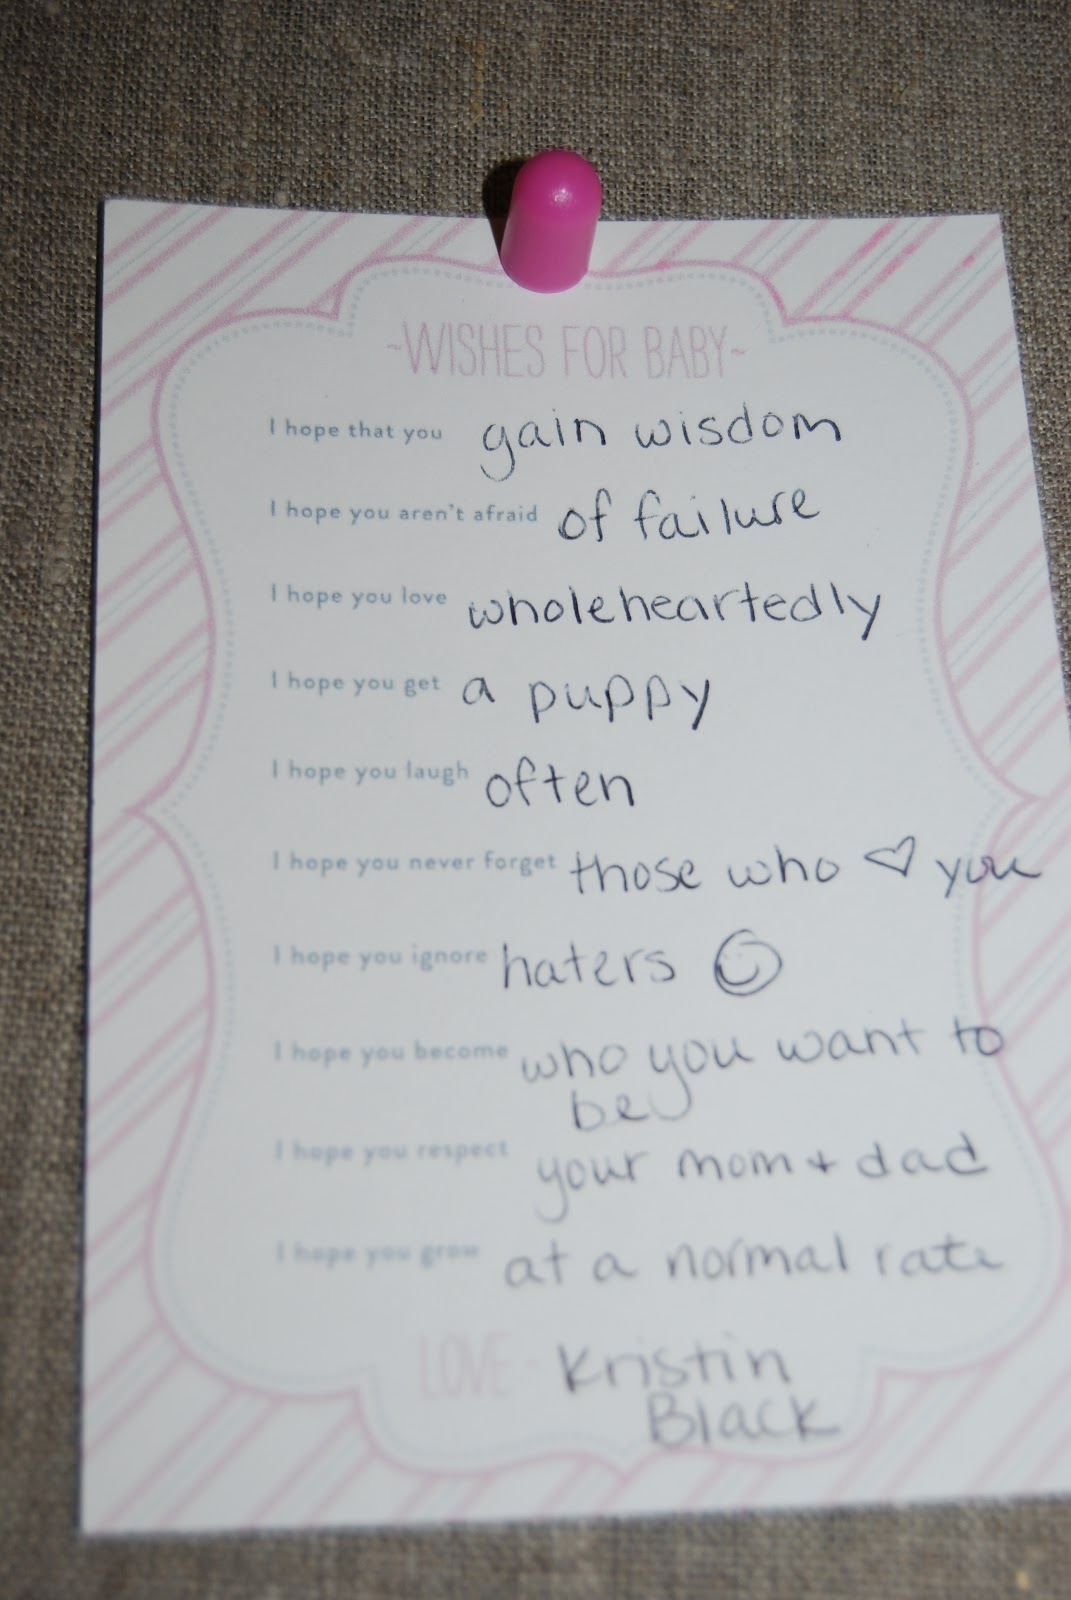 ~WISHES FOR BABY~
I hope that you gain wisdom
I hope you aren't afraid of failure
I hope you love wholeheartedly
I hope you get a puppy
I hope you laugh often
I hope you never forget those who ♡ you
I hope you ignore haters ☺
I hope you become who you want to
be
I hope you respect your mom + dad
I hope you grow at a normal rate
LOVE - Kristin
Black